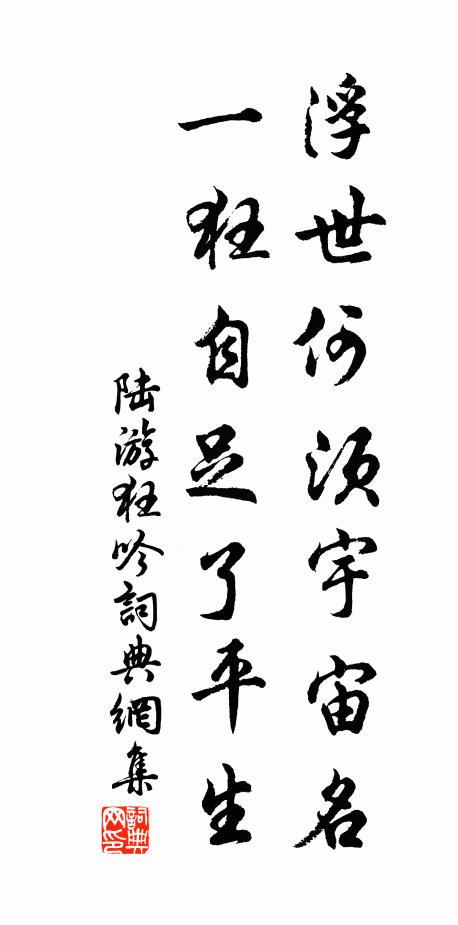 浮世何須宇宙名
一狂自足了平生
陆游狂吟詞典網集
詞典
网印